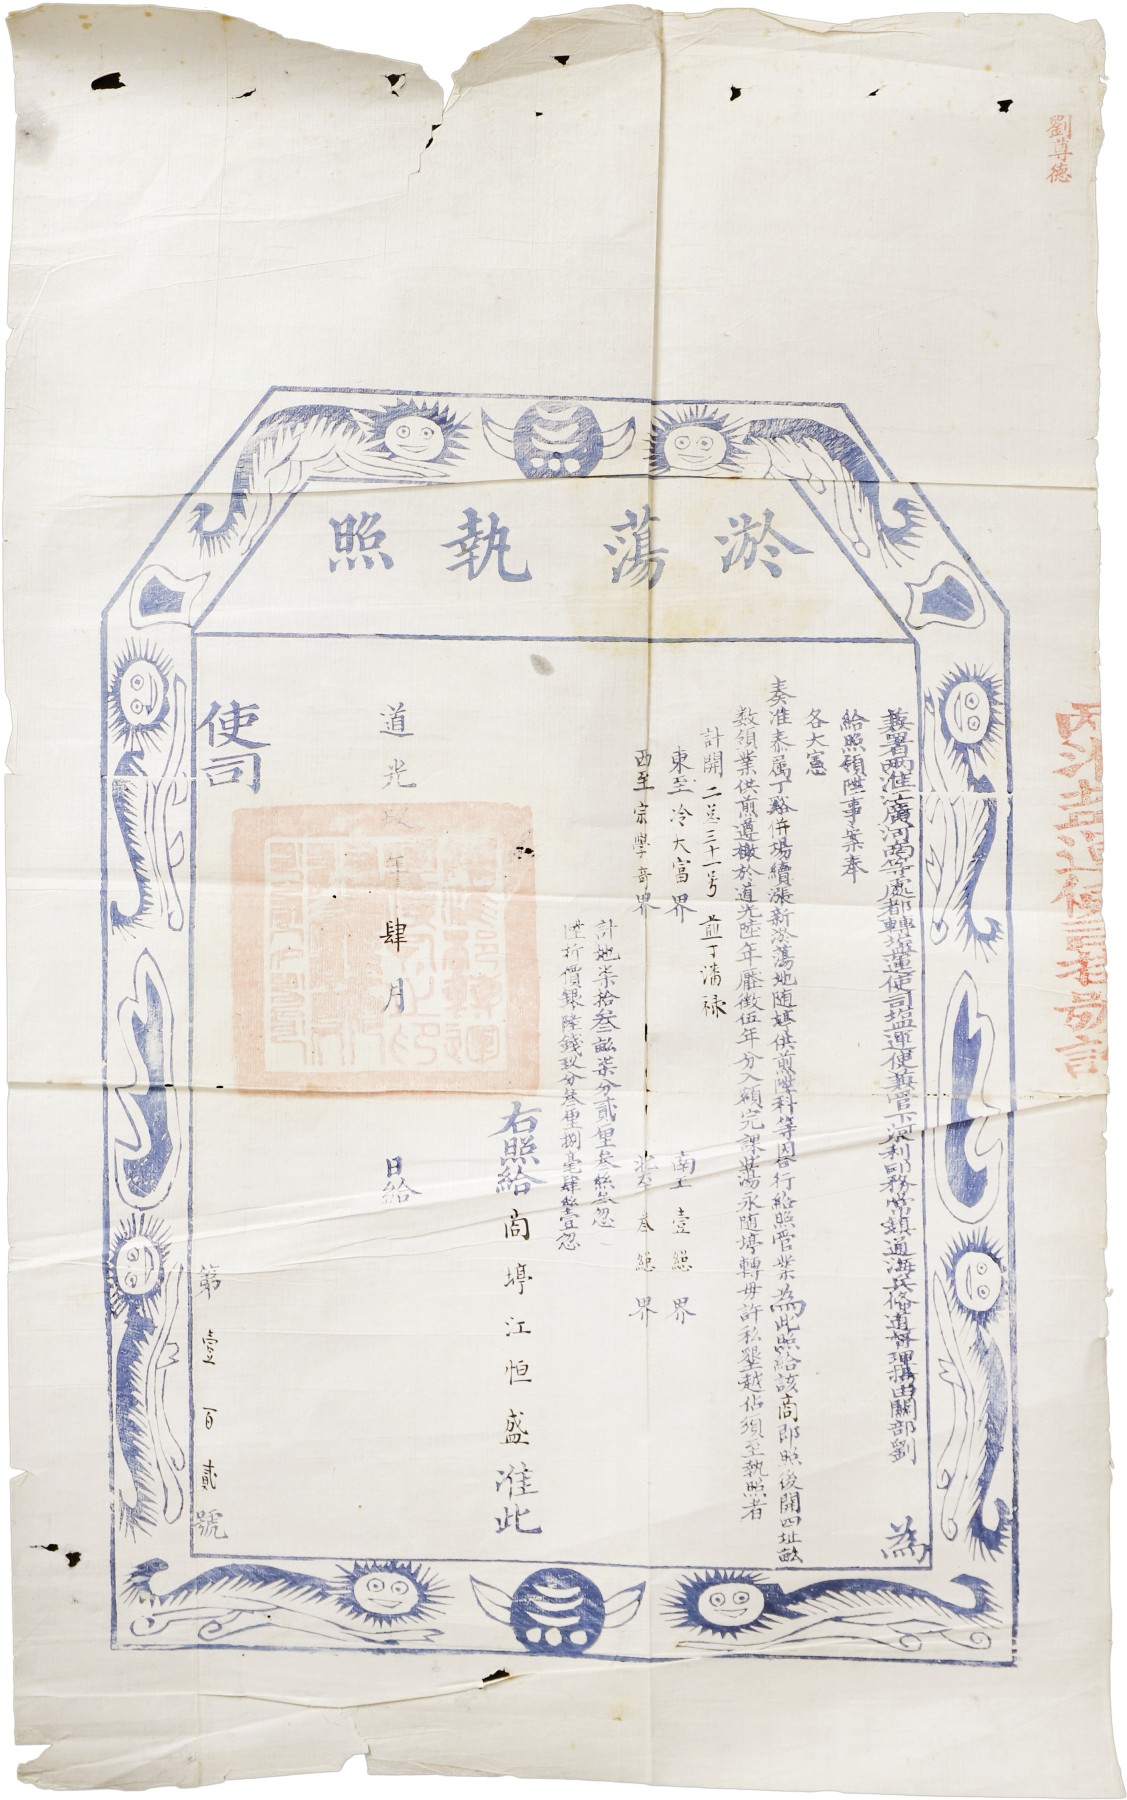 劉尊德
淤蕩執照
兼署兩淮江廣河南等處都轉塩運使司塩運使兼管下河水利事務常鎮通海兵俻道督理揚由關部劉 為
給照領陞事案奉
各大憲
奏准泰屬丁谿併場續漲新淤蕩地随𤉸供煎陞科等因合行給照管業為此照給該商即照後開四址畝
数領業供煎遵檄於道光陸年壓徵伍年分入額完課蕩永随埻轉毋許私墾越佔須至執照者
計開 二总三十一号 煎丁潘禄
東至冷大富界 南至 壹總 界
西至宗學奇界 北至 叁總 界
計地柒拾叁畝柒分貳厘叁絲叁忽
陞折價銀陸錢玖分叁厘捌毫肆絲壹忽
右照給 商埻江恒盛 准此
道光玖年肆月 日給
使司
第壹百貳號